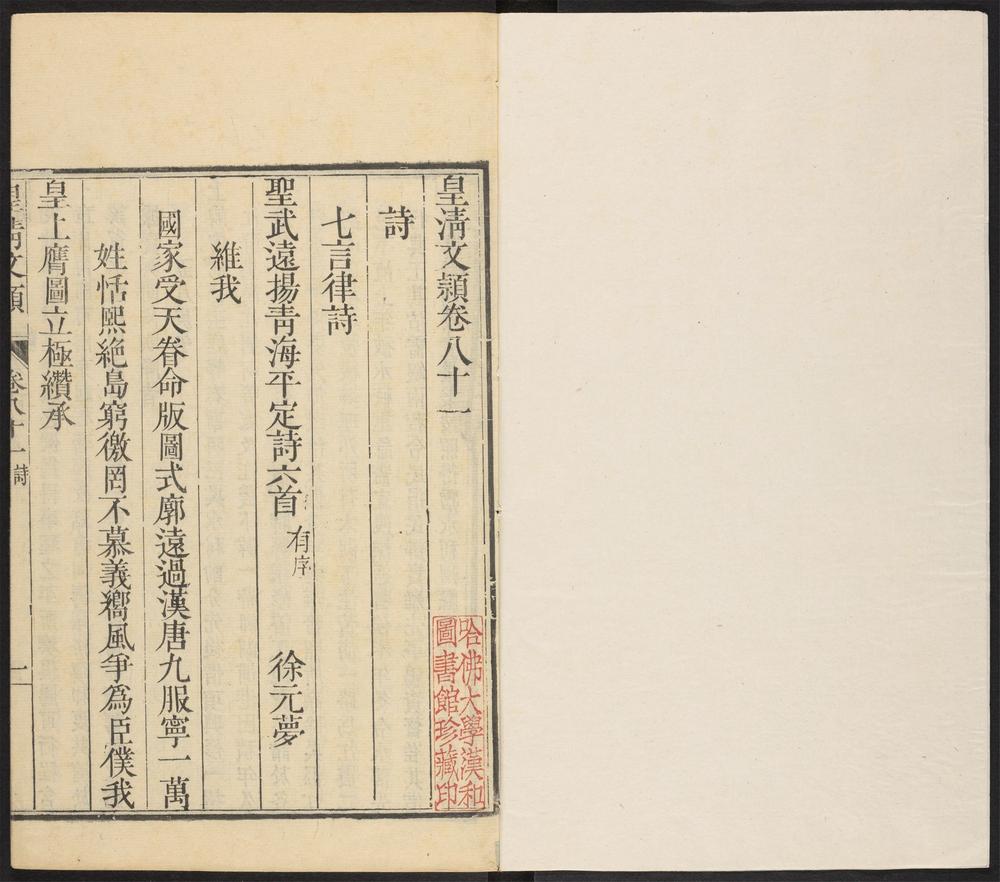 皇清文穎卷八十一
詩
七言律詩
聖武遠揚青海平定詩六首 有序
徐元夢
維我
國家受天眷命版圖式廓遠過漢唐九服寧一萬
姓恬熙絶島窮徼罔不慕義嚮風爭爲臣僕我
皇上膺圖立極纘承
皇清文穎
卷八十一 詩
一
哈佛大學漢和
圖書館珍藏印